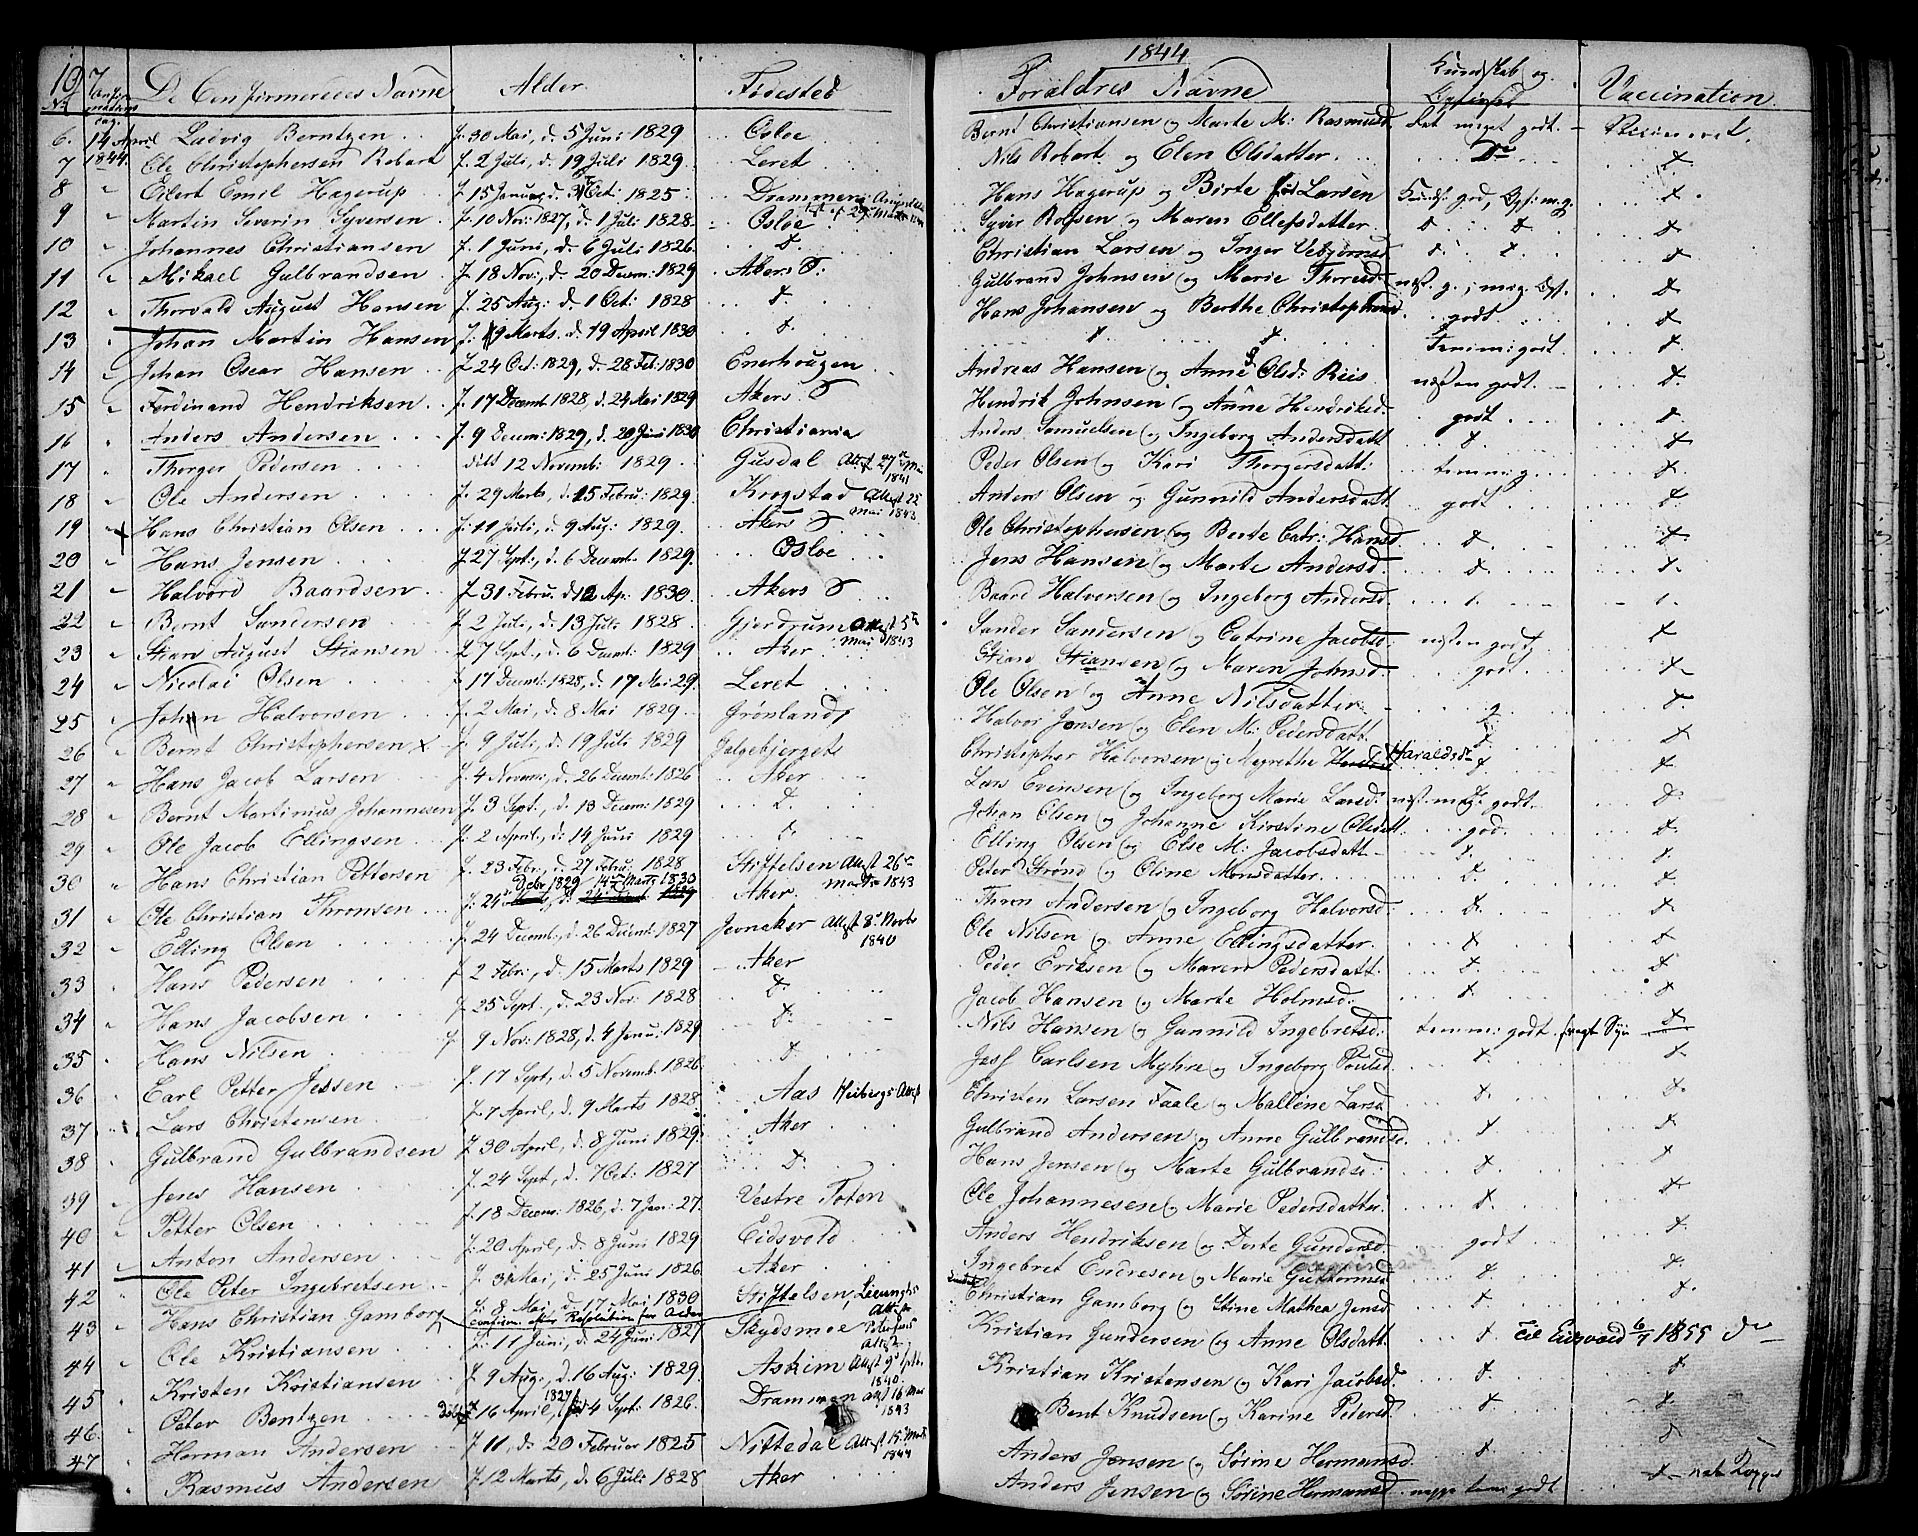 107 1844
No. Confirmations dag. De Confirmeredes Navne Alder Fødested Forældres Navne Kundskab og Opførsel Vaccination
6. 14 April 1844. Ludvig Berntzen f. 30 Mai, d. 5 Juni 1829 Osloe Bernt Christiansen og Marte M: Rasmusd. Det meget godt. Vaccineret.
7 Ole Christophersen Robart f. 2 Juli, d. 19 Juli 1829 Leret Nils Robart og Elen Olsdatter. Do
8 " Eilert Emil Hagerup f. 15 Januar, d. Oct: 1825 Drammen Hans Hagerup og Birte Larsen Kundsk: god, Opf: m.g.
9 " Martin Severin Syversen f. 10 Nov: 1827, d. 1 Juli 1828 Osloe Syver Rolfsen og Maren Ellefsdatter d. d. d.
10 " Johannes Christiansen f. 1 Juni, d. 6 Juli 1826 d. Christian Larsen og Inger d. d. d.
11 " Mikael Gulbrandsen f. 18 Nov:, d. 20 Decem: 1829 Akers S: Gulbrand Johnsen og Marie Thoresd. næst. g., meg. Opf. d.
12 " Thorvald August Hansen f. 25 Aug: d. 1 Oct: 1828 d. Hans Johansen og Berthe Christophersd. godt d.
13 " Johan Martin Hansen f. 9 Marts, d. 19 April 1830 d. d. d. Temm: godt. d.
14 " Johan Oscar Hansen f. 24 Oct: 1829, d. 28 Feb: 1830 Enerhougen Andreas Hansen og Anne Olsd: Riis næsten godt. d.
15 " Ferdinand Hendriksen f. 17 Decemb. 1828, d. 24 Mai 1829 Akers S Hendrik Johnsen og Anne Hendriksd. godt. d.
16 " Anders Andersen f. 9 Decem: 1829, d. 20 Juni 1830 Christiania Anders Samuelsen og Ingeborg Andersdatt d. d.
17 " Thorger Pedersen 12 Novemb: 1829 Gusdal Attest 27de Mai 1841 Peder Olsen og Kari Thorgersdatt: temm: g. d.
18 " Ole Andersen f. 29 Marts, d. 15 Febru: 1829 Krogstad Attest 22 Mai 1843 Anders Olsen og Gunnild Andersdatt godt d.
19 Hans Christian Olsen f. 11 Juli, d. 9 Aug: 1829. Akers S Ole Christophersen og Berte Catr: Hansd d. d.
20 " Hans Jensen f. 27 Sept:, d. 6 Decemb: 1829. Osloe Jens Hansen og Marte Andersd. d. d.
21 " Halvord Baardsen f. 31 Febru. d. 12 Ap: 1830. Akers S Baard Halvorsen og Ingeborg Andersd. d. d.
22 " Bernt Sandersen f. 2 Juli, d. 13 Juli 1828. Gjerdrum Attest 5te Mai 1843 Sander Sandersen og Catrine Jacobsd næsten godt. d.
23 " Stian August Stiansen f. 7 Sept:, d. 6 Decemb: 1829 Aker Stian Stiansen og Maren Johnsd. godt. d.
24 " Nicolai Olsen f. 17 Decemb: 1828, d. 17 Mai 29. Leret Ole Olsen og Anne Nilsdatter d.
25 " Johan Halvorsen f. 2 Mai, d. 8 Mai 1829 Grønland Halvor Jensen og Elen M: Pedersdatt. d. d.
26 " Bernt Christophersen x f. 9 Juli, d. 19 Juli 1829 Galgebjerget Christopher Halvorsen og Megrethe Haraldsd. d. d.
27 " Hans Jacob Larsen f. 4 Novem:, d. 26 Decemb: 1826 Aker Lars Evensen og Ingeborg Marie Larsd. næst. meg. godt. d.
28 " Bernt Martinius Johannesen f. 3 Sept., d. 13 Decem: 1829 d. Johan Olsen og Johanne Kirstine Olsdatt. god. d.
29 " Ole Jacob Ellingsen f. 2 April., d. 14 Juni 1829 d. Elling Olsen og Else M: Jacobsdatt d. d.
30 " Hans Christian Pettersen f. 23 Febr., d. 27 Febru: 1828 Stiftelsen Attest 26de Marts 1843 Peter Strønd og Oline Monsdatter d. d.
31 " Ole Christian Thronsen f. 24 Decbr 1829 14de Marts 1830 Aker. Thron Andersen og Ingeborg Halvorsd. d. d.
32 " Elling Olsen f. 24 Decemb:, d. 26 Decemb: 1827 Jevnaker Attest 8de Novbr 1840 Ole Nilsen og Anne Ellingsdatter. d. d.
33 " Hans Pedersen f. 2 Febr:, d. 15 Marts 1829 Aker Peder Eriksen og Maren Pedersdatt. d. d.
34 " Hans Jacobsen f. 25 Sept., d. 23 Nov: 1828 d. Jacob Hansen og Marte Holmsd: d. d.
35 " Hans Nilsen f. 9 Nov: 1828, d. 4 Janu: 1829 d. Nils Hansen og Gunnild Ingebretsd: temm: godt. svagt Syn d.
36 " Carl Petter Jessen f. 17 Sept, d. 5 Novemb. 1826 d. Jess Carlsen Myhre og Ingeborg Poulsd. d. d.
37 " Lars Christensen f. 7 April, d. 9 Marts 1828 Aas Heibergs Attest Christen Larsen Faale og Mallene Larsd d. d.
38 " Gulbrand Gulbrandsen f. 30 April, d. 8 Juni 1829 Aker Gulbrand Andersen og Anne Gulbrandsd. d. d.
39 " Jens Hansen f. 24 Sept, d. 7 Oct: 1827 d. Hans Jensen og Marte Gulbrandsd: d. d.
40 " Petter Olsen f. 18 Decem: 1826, d. 7 Jan: 27. Vestre Toten Ole Johannesen og Marie Pedersdatter. d. d.
41 " Anton Andersen f. 20 April, d. 8 Juni 1829 Eidsvold Anders Hendriksen og Dorte Gundersd. godt d.
42 " Ole Peter Ingebretsen f. 31 Mai, d. 25 Juni 1826 Aker Ingebret Endresen og Marie Guttormsd d. d.
43 " Hans Christian Gamborg f. 8 Mai d. 17 Mai 1830 confirm. efter Resolution for Alder Stiftelsen, Christian Gamborg og Stine Mathea Jensd. d. d.
44 " Ole Kristiansen f. 11 Juni, d. 24 Juni 1827 Skydsmoe Kristian Gundersen og Anne Olsdatt d. Til Eidsvold 6/7 1855 do
45 " Kristen Kristiansen f. 9 Aug:, d. 16 Aug: 1829. Askim Attest 9de Septb. 1840. Kristian Kristensen og Kari Jacobsd. d. d.
46 " Peter Bentzen f. 16 April, 1827 4 Sept: 1826. Drammen Attest 16 Mai 1843 Bent Knudsen og Karine Pedersd. d. d.
47 " Herman Andersen f. 11, d. 20 Februar 1825 Nittedal Attest 15. 1844 Anders Jensen og Sørine Hermansd. d. d.
" Rasmus Andersen f. 12 Marts, d. 6 Juli 1828 Aker Anders Jensen og Sørine Hermansd. neppe tem: godt d. nat. Kopper